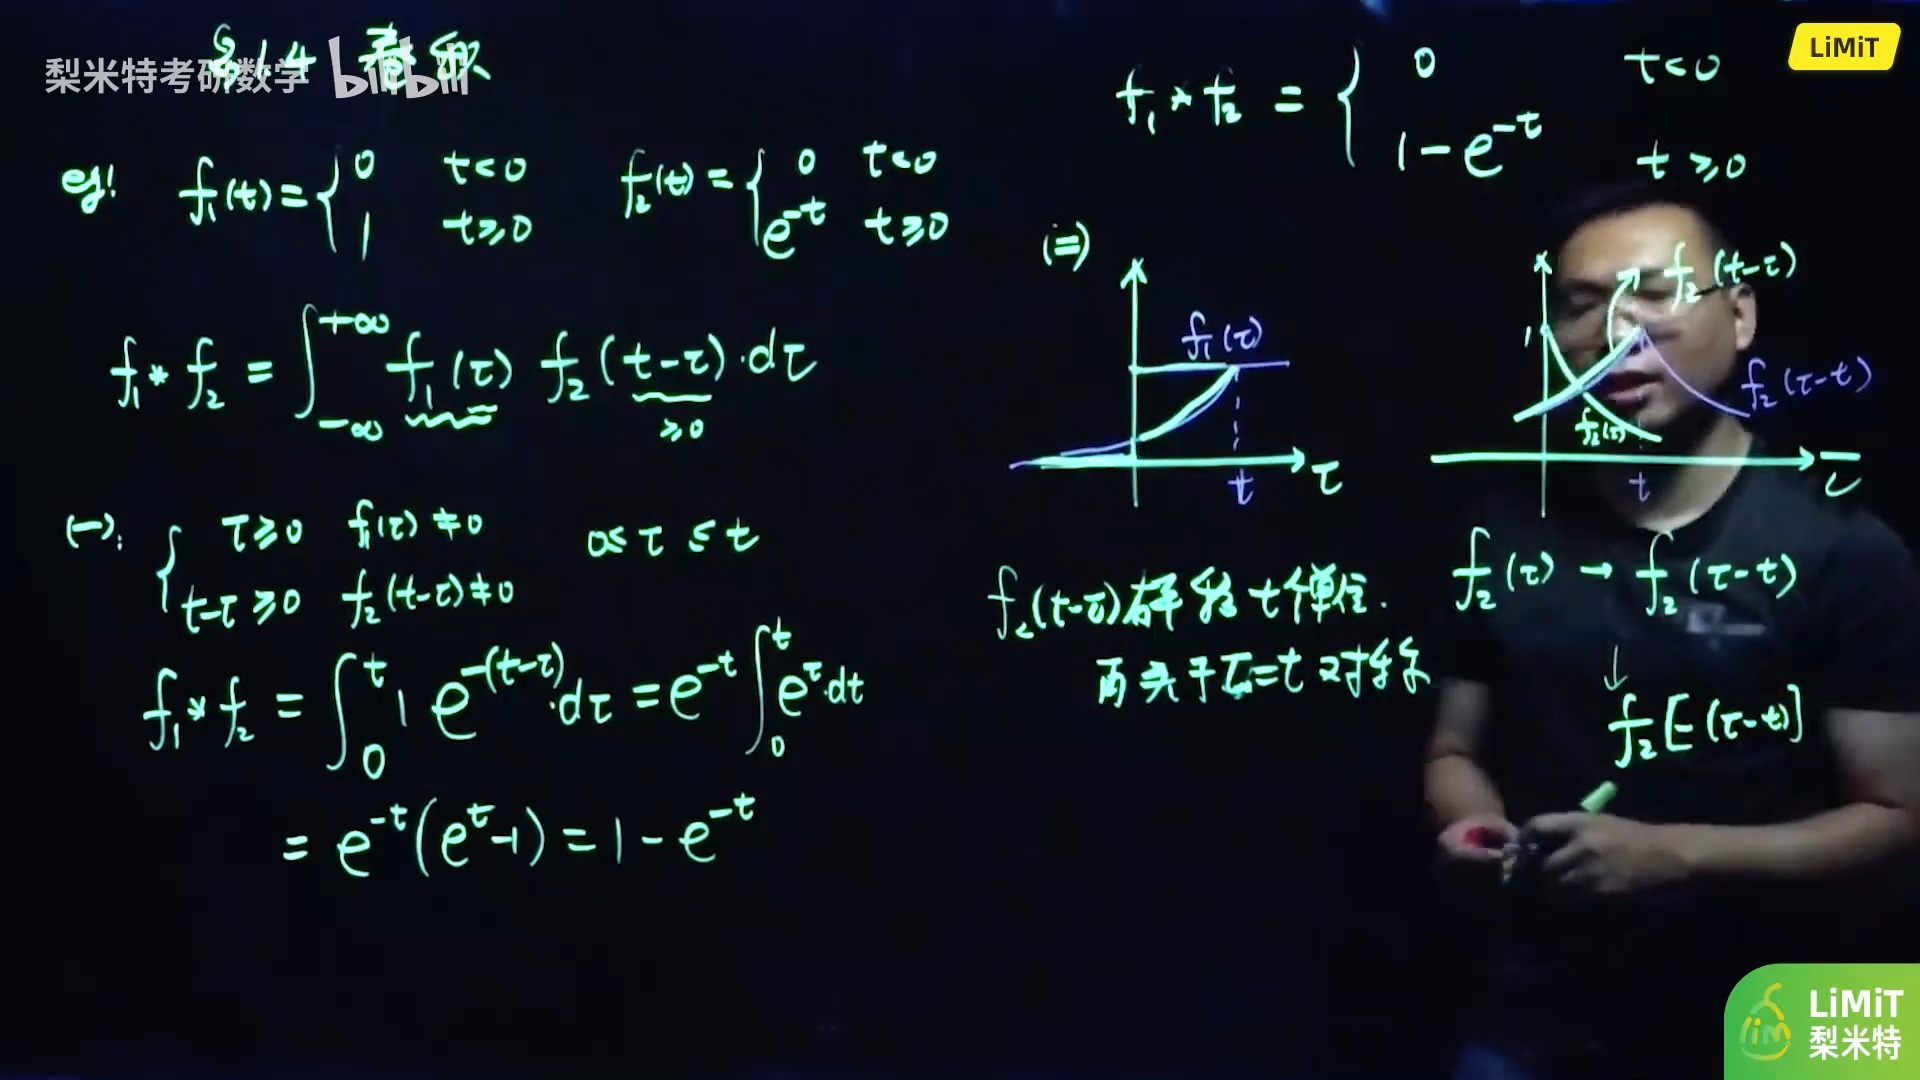 §1.4 卷积
梨米特考研数学 bilibili
eg! f₁(t)={ 0 t<0
1 t≥0
f₂(t)={ 0 t<0
e^{-t} t≥0
f₁*f₂ = ∫_{-∞}^{+∞} f₁(τ) f₂(t-τ)·dτ
≥0
(一): { τ≥0 f₁(τ)≠0
t-τ≥0 f₂(t-τ)≠0
0≤τ≤t
f₁*f₂ = ∫_0^t 1 e^{-(t-τ)}·dτ = e^{-t} ∫_0^t e^τ·dτ
= e^{-t}(e^t-1) = 1-e^{-t}
f₁*f₂ = { 0 t<0
1-e^{-t} t≥0
(二)
f₁(τ)
t
τ
1
f₂(t-τ)
f₂(τ-t)
f₂(τ)
t
τ
f₂(t-τ)右平移t个单位.
再关于τ=t对称
f₂(τ) → f₂(τ-t)
↓
f₂[-(τ-t)]
LiMiT
LiMiT
梨米特